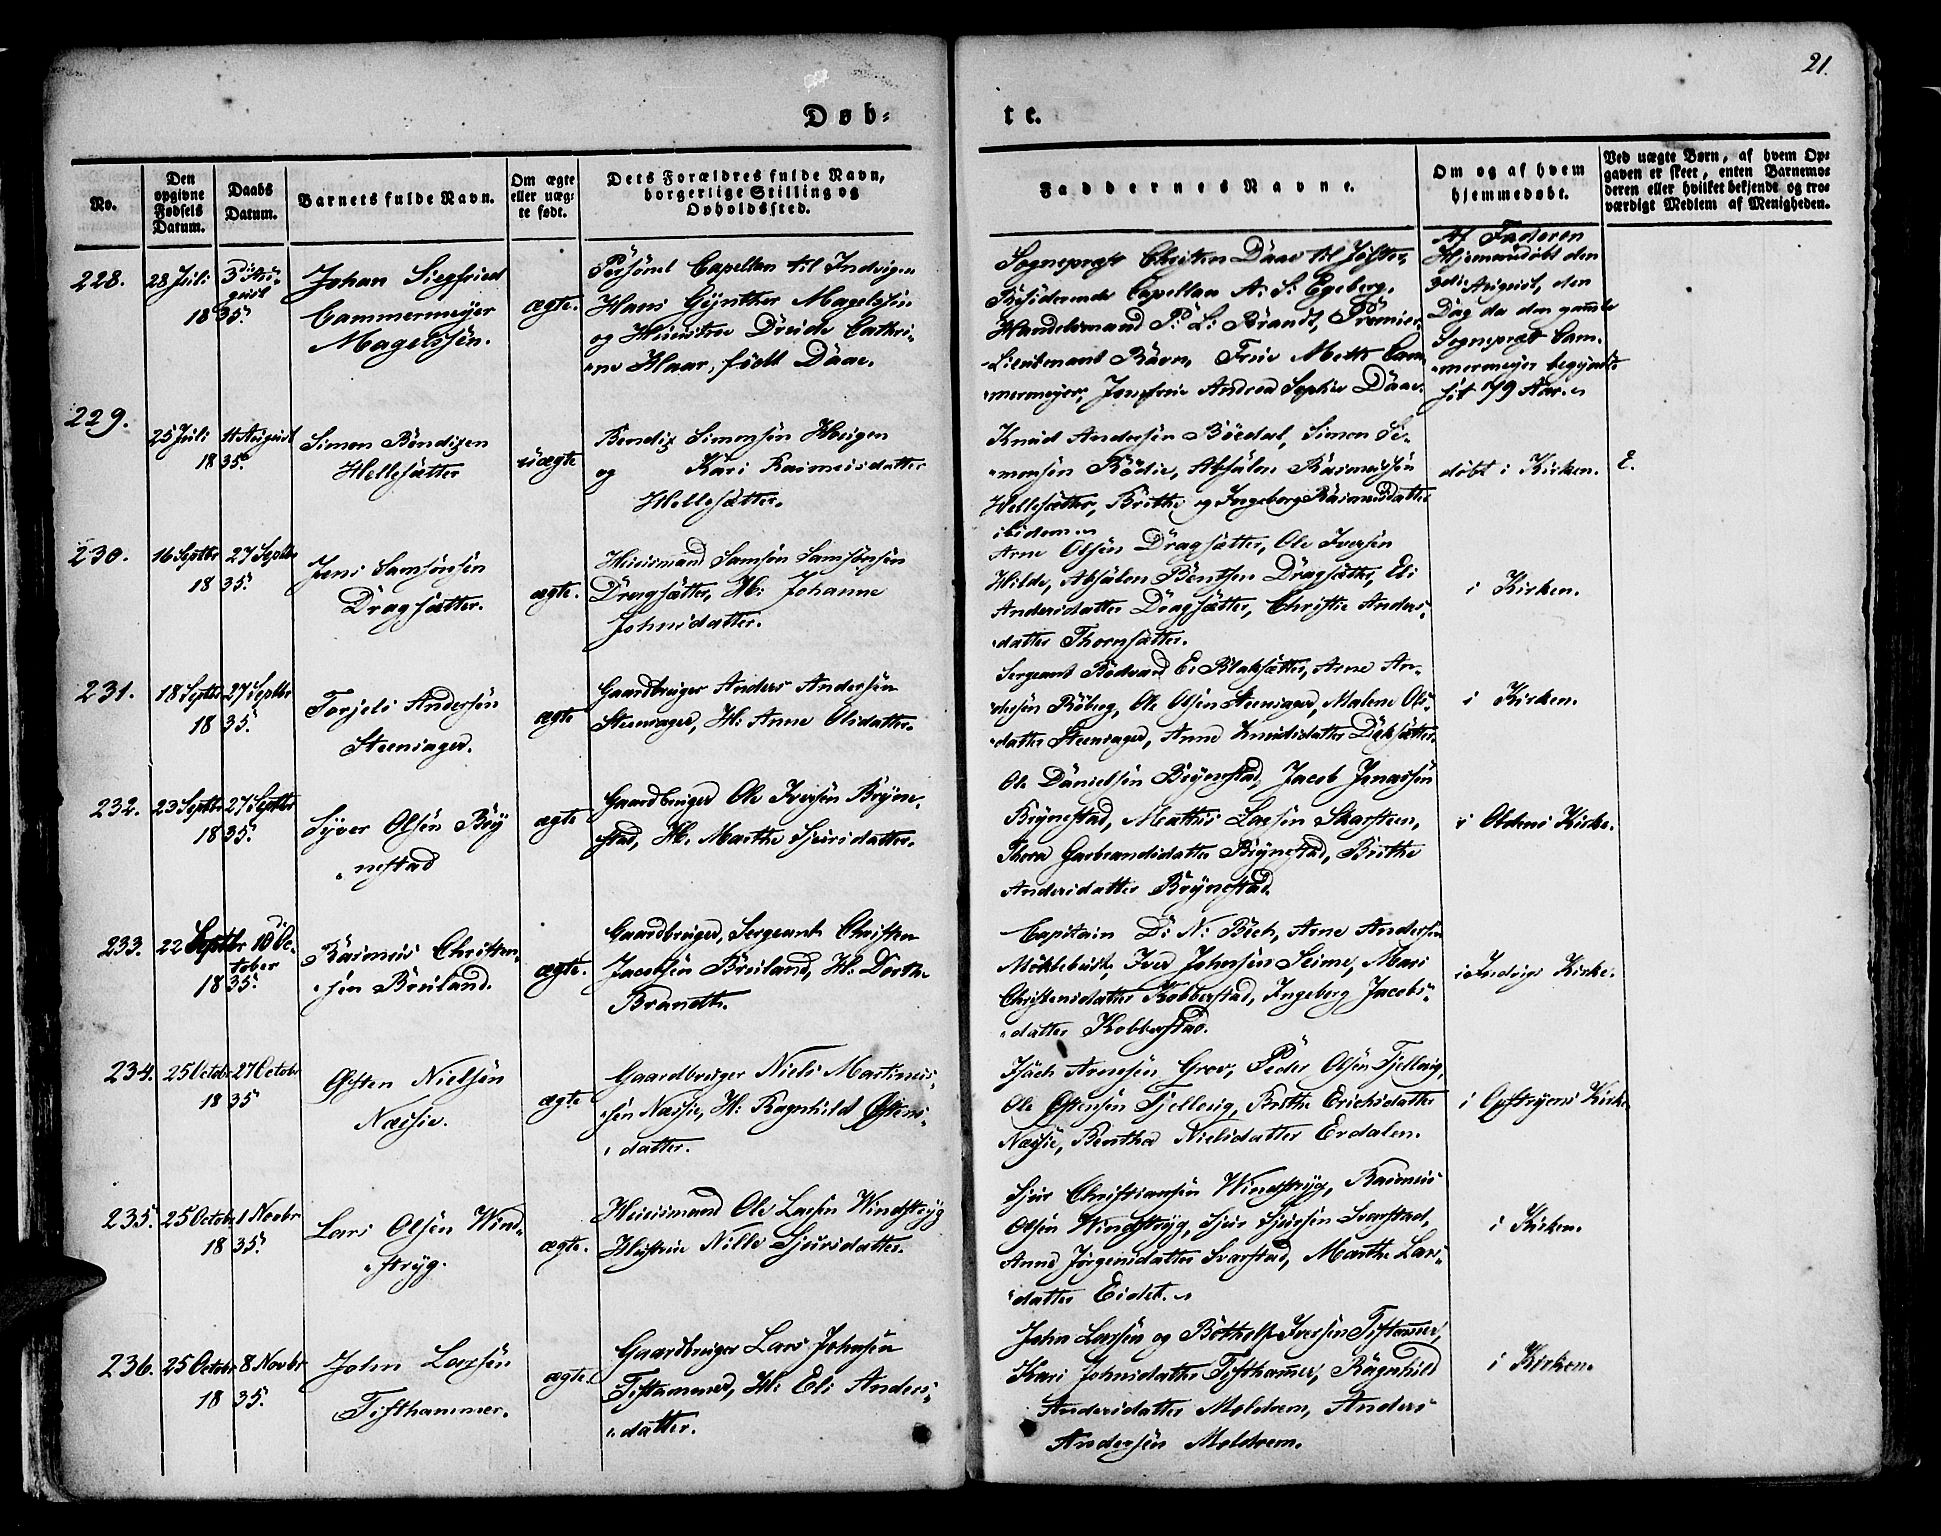 21.
Døb=
te.
No.
Den opgivne Fødsels Datum.
Daabs Datum.
Barnets fulde Navn.
Om ægte eller uæg-te født.
Dets Forældres fulde Navn, borgerlige Stilling og Opholdssted.
Faddernes Navne.
Om og af hvem hjemmedøbt.
Ved uægte Børn, af hvem Op-gaven er skeet, enten Barnemo-deren eller hvilket bekjendt og tro-værdigt Medlem af Menigheden.
228.
28 Juli 3die Au-
gust
1835.
Johan Siegfried
Cammermeyer
Magelssen.
ægte.
Persönl Capellan til Indvigen
Hans Gynther Magelssen
og Huustrue Drude Cathri-
ne Haar, født Daae.
Sognepræst Christen Daae til Jölster,
Residerende Capellan A. S. Egeberg,
Handelsmand P. L. Brandt, Premier-
Lieutenant Ravn, Frue Mette Cam-
mermeyer, Jomfrue Andrea Sophie Daae.
Af Faderen
Hjemmedøbt den
3die August, den
Dag da den gamle
Sognepræst Cam-
mermeyer begyndte
sit 79 Aar.
229.
25 Juli 4 August
1835.
Simon Bendixen
Hellesætter
uægte
Bendix Simonsen Haugen
og Kari Rasmusdatter
Hellesætter.
Knud Andersen Böedal, Simon Si-
monsen Rödie, Absalon Rasmussen
Hellesætter, Brithe og Ingeborg Rasmusdatter
ibidem.
døbt i Kirken.
230.
16 Septbr 27 Septbr
1835.
Jens Samsonsen
Dragsætter.
ægte.
Huusmand Samson Samsonsen
Dragsætter, H: Johanne
Johnsdatter.
Arne Olsen Dragsætter, Ole Iversen
Hilde, Absalon Bentsen Dragsætter, Eli
Andersdatter Dragsætter, Christie Anders-
datter Thornsætter.
i Kirken.
231.
18 Septbr 27 Septbr
1835.
Torjels Andersen
Steensager.
ægte
Gaardbruger Anders Andersen
Steensager, H: Anne Olsdatter.
Sergeant Rodvard E. Blaksætter, Arne An-
dersen Röberg, Ole Olsen Steensager, Malene Ols-
datter Steensager, Anne Knudsdatter
i Kirken.
232.
23 Septbr 27 Septbr
1835.
Syver Olsen Bry
nestad
ægte
Gaardbruger Ole Iversen Bryne-
stad, H. Marthe Sjursdatter.
Ole Danielsen Brynestad, Jacob Jonassen
Brynestad, Mathias Larsen Skarsteen,
Thora Garbrandsdatter Brynestad, Brithe
Andersdatter Brynestad.
i Oldens Kirke.
233.
22 Septbr 10de Oc-
tober
1835.
Rasmus Christen-
sen Breiland.
ægte.
Gaardbruger, Sergeant Christen
Jacobsen Breiland, H. Dorthe
Brandth.
Capitain D. N. Bech, Arne Andersen
Möklebust, Iver Johnsen Seime, Mari
Christensdatter Kobberstad, Ingeborg Jacobs-
datter Kobberstad.
i Indvigs Kirke.
234.
25 Octobr 27 Octobr
1835
Østen Nielsen
Næssie.
ægte
Gaardbruger Niels Martinus-
sen Næssie, H: Ragnhild Østens-
datter.
Isach Arnesen Grov, Peder Olsen Tjellaug,
Ole Østensen Tjellaug, Brithe Erichsdatter
Næssie, Bentha Nielsdatter Erdalen.
i Opstryens Kirke.
235.
25 Octobr 1 Novbr
1835.
Lars Olsen Wind-
stryg.
ægte.
Huusmand Ole Larsen Windstryg
Hustrue Nille Sjursdatter.
Sjur Christiansen Windstryg, Rasmus
Olsen Windstryg, Sjur Sjursen Svarstad,
Anne Jörgensdatter Svarstad, Marthe Lars-
datter Eidet.
i Kirken.
236.
25 Octobr 8 Novbr
1835.
John Larsen
Tisthammer.
ægte.
Gaardbruger Lars Johnsen
Tistammer, H: Eli Anders-
datter.
John Larsen og Botholf Iversen Tistamer,
Kari Johnsdatter Tisthamer, Ragnhild
Andersdatter Meldrem, Anders
Andersen Meldrem.
i Kirken.